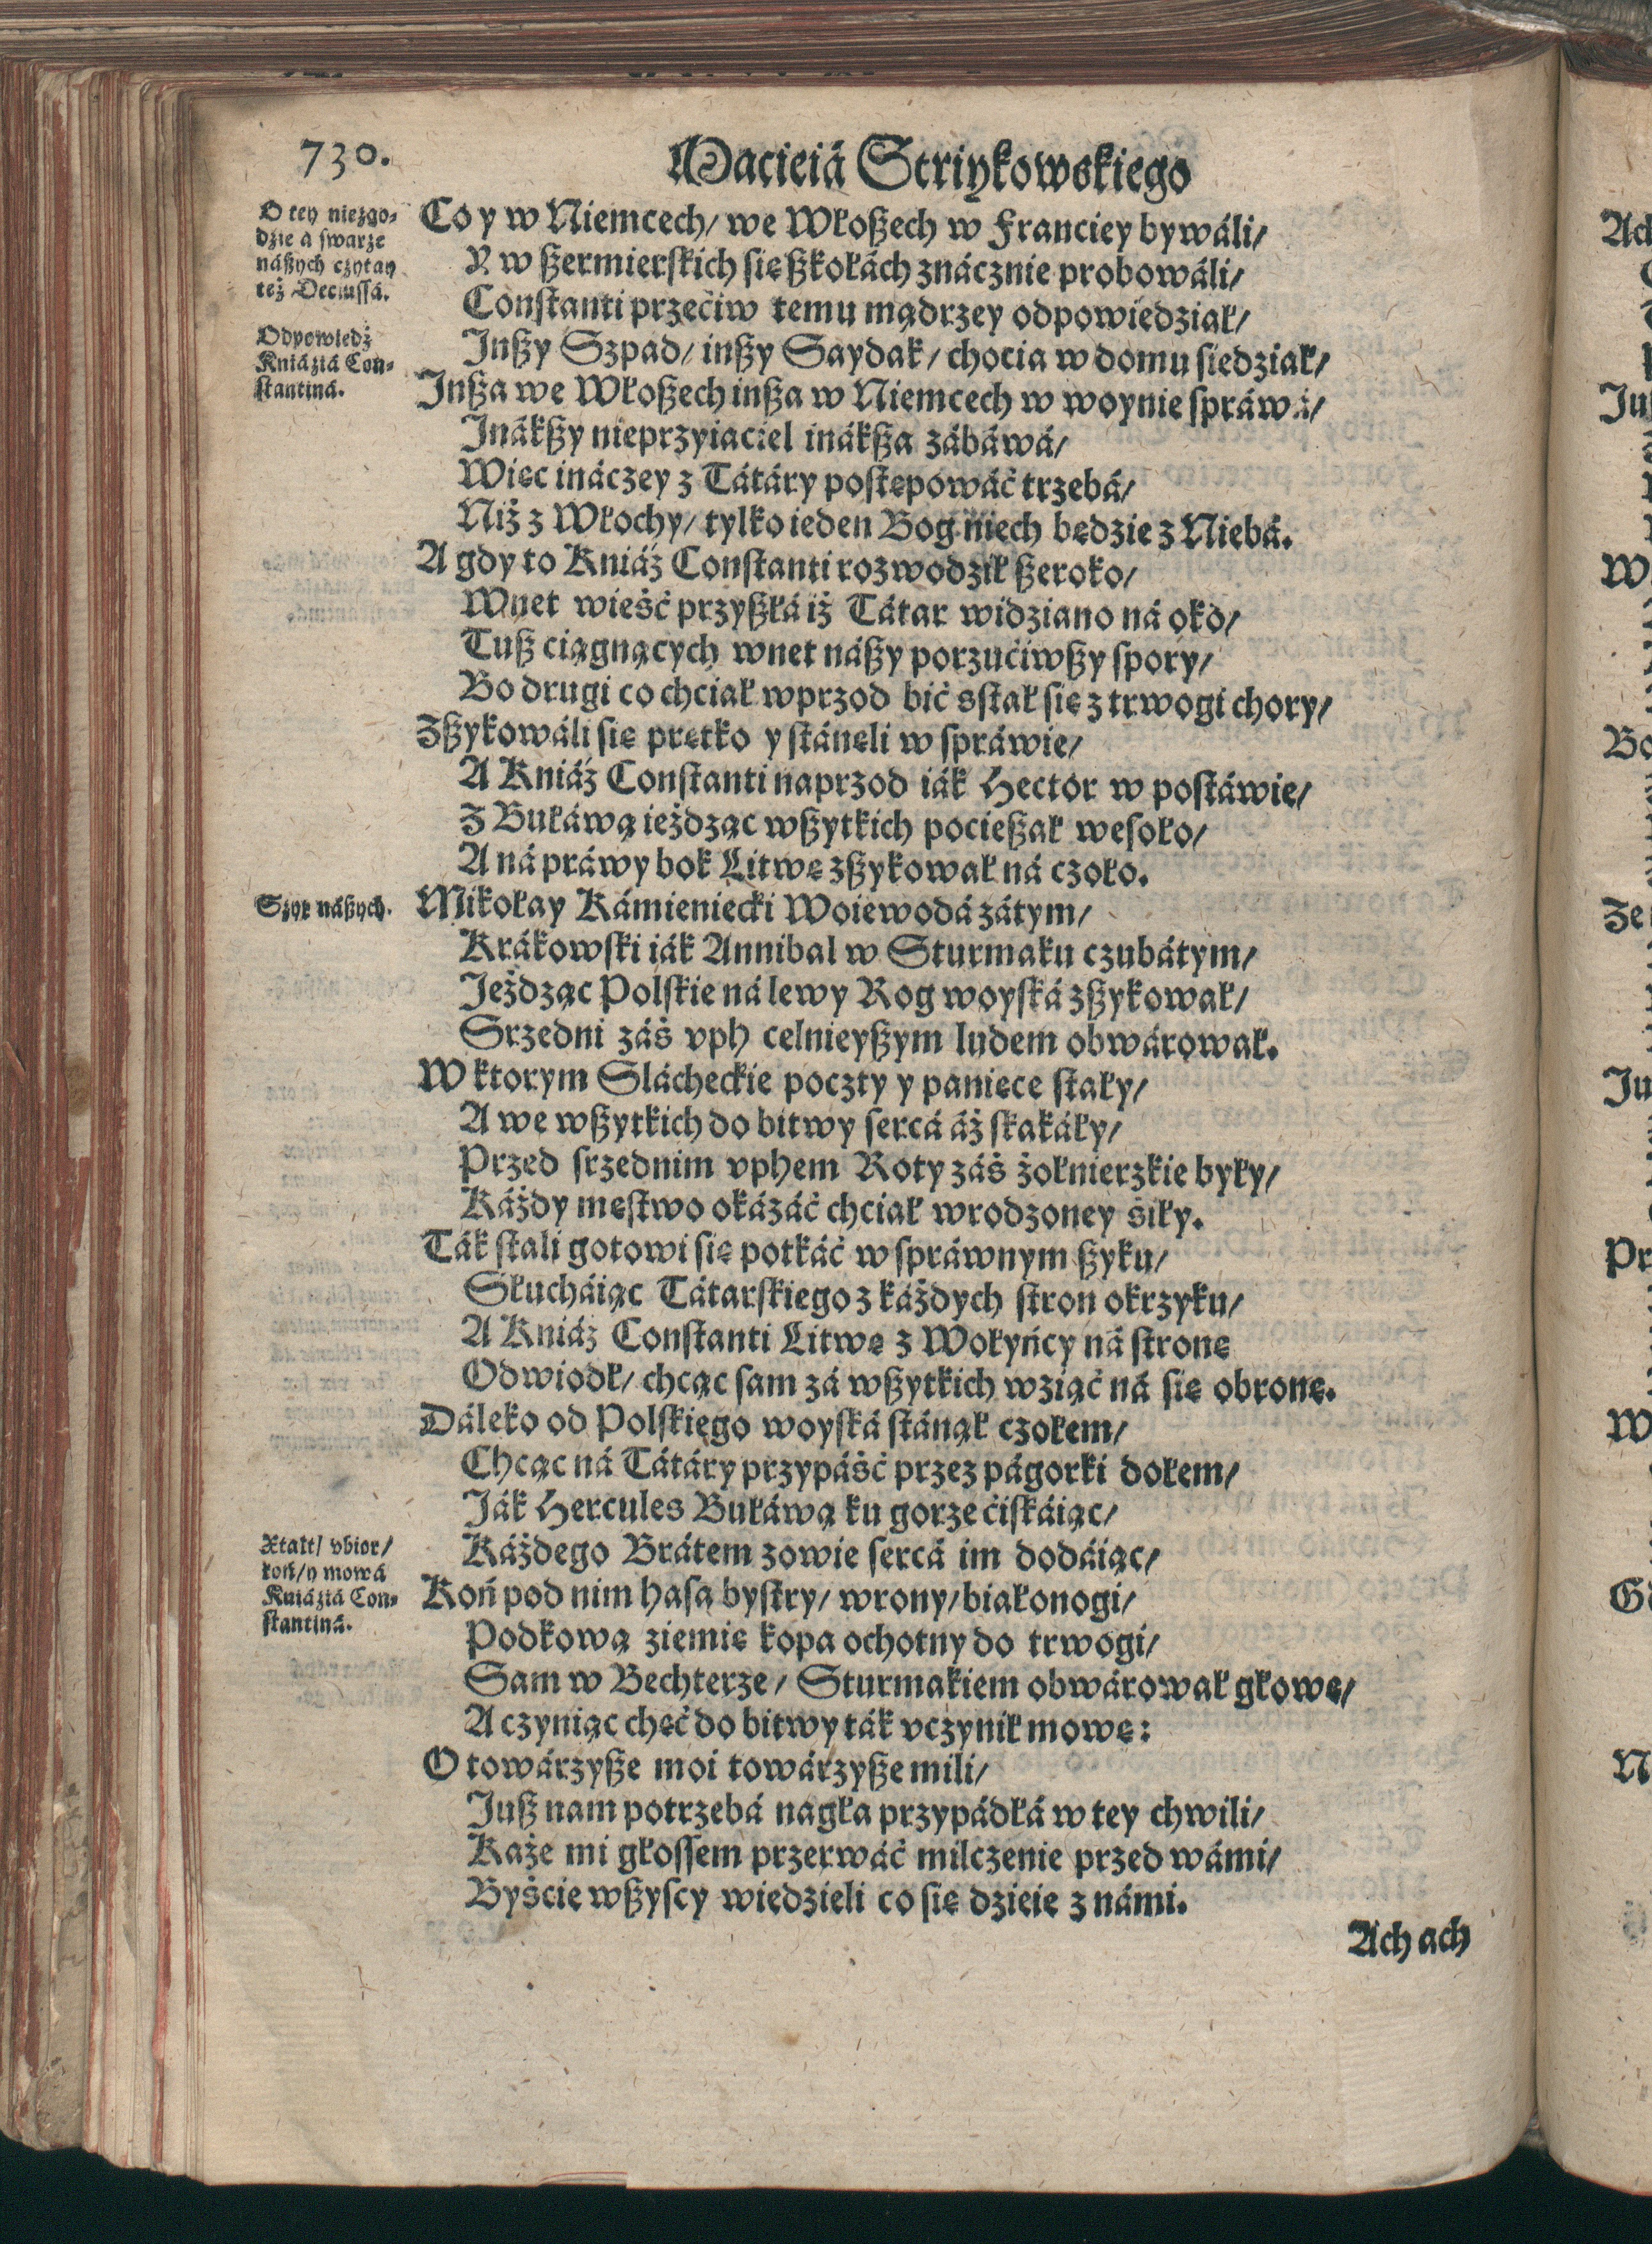 730.
Macieiá Striykowskiego
O tey niezgo⸗
dzie á swarze
nászych czytay
też Deciussá.
Odpowiedź
Kniáziá Con⸗
stantiná.
Co y w Niemcech/ we Włoszech w Franciey bywáli/
Y w szermierskich się szkołách znácznie probowáli/
Constanti przećiw temu mądrzey odpowiedział/
Inszy Szpad/ inszy Saydak/ chocia w domu siedział/
Insza we Włoszech insza w Niemcech w woynie spráwá/
Inákszy nieprzyiaciel ináksza zábáwá/
Więc ináczey z Tátáry postępowáć trzebá/
Niż z Włochy/ tylko ieden Bog niech będzie z Niebá.
A gdy to Kniáź Constanti rozwodził szeroko/
Wnet wieść przyszłá iż Tátar widziano ná oko/
Tusz ciągnących wnet nászy porzućiwszy spory/
Bo drugi co chciał wprzod bić sstał się z trwogi chory/
Zszykowáli się prętko y stánęli w spráwie/
A Kniáź Constanti naprzod iák Hector w postáwie/
Z Buláwą ieżdżąc wszytkich pocieszał wesoło/
A ná práwy bok Litwę zszykował ná czoło.
Szyk nászych.
Mikołay Kámieniecki Woiewodá zátym/
Krákowski iák Annibal w Sturmaku czubátym/
Jeżdżąc Polskie ná lewy Rog woyská zszykował/
Srzedni záś vph celnieyszym ludem obwárował.
W ktorym Slácheckie poczty y panięce stały/
A we wszytkich do bitwy sercá áż skakáły/
Przed srzednim vphem Roty záś żołnierzkie były/
Káżdy męstwo okázáć chciał wrodzoney śiły.
Ták stali gotowi się potkáć w spráwnym szyku/
Słucháiąc Tátarskiego z káżdych stron okrzyku/
A Kniáź Constanti Litwę z Wołyńcy ná stronę
Odwiodł/ chcąc sam zá wszytkich wziąć ná się obronę.
Dáleko od Polskięgo woyská stánął czołem/
Chcąc ná Tátáry przypáść przez págorki dołem/
Ják Hercules Buláwą ku gorze ćiskáiąc/
Káżdego Brátem zowie sercá im dodáiąc/
Xtałt/ vbior/
koń/ y mowá
Kniáziá Con⸗
stantiná.
Koń pod nim hasa bystry/ wrony/ białonogi/
Podkową ziemię kopa ochotny do trwogi/
Sam w Bechterze/ Sturmakiem obwárował głowę/
A czyniąc chęć do bitwy ták vczynił mowę:
O towárzysze moi towárzysze mili/
Jusz nam potrzebá nagła przypádłá w tey chwili/
Każe mi głossem przerwáć milczenie przed wámi/
Byście wszyscy wiedzieli co się dzieie z námi.
Ach ach